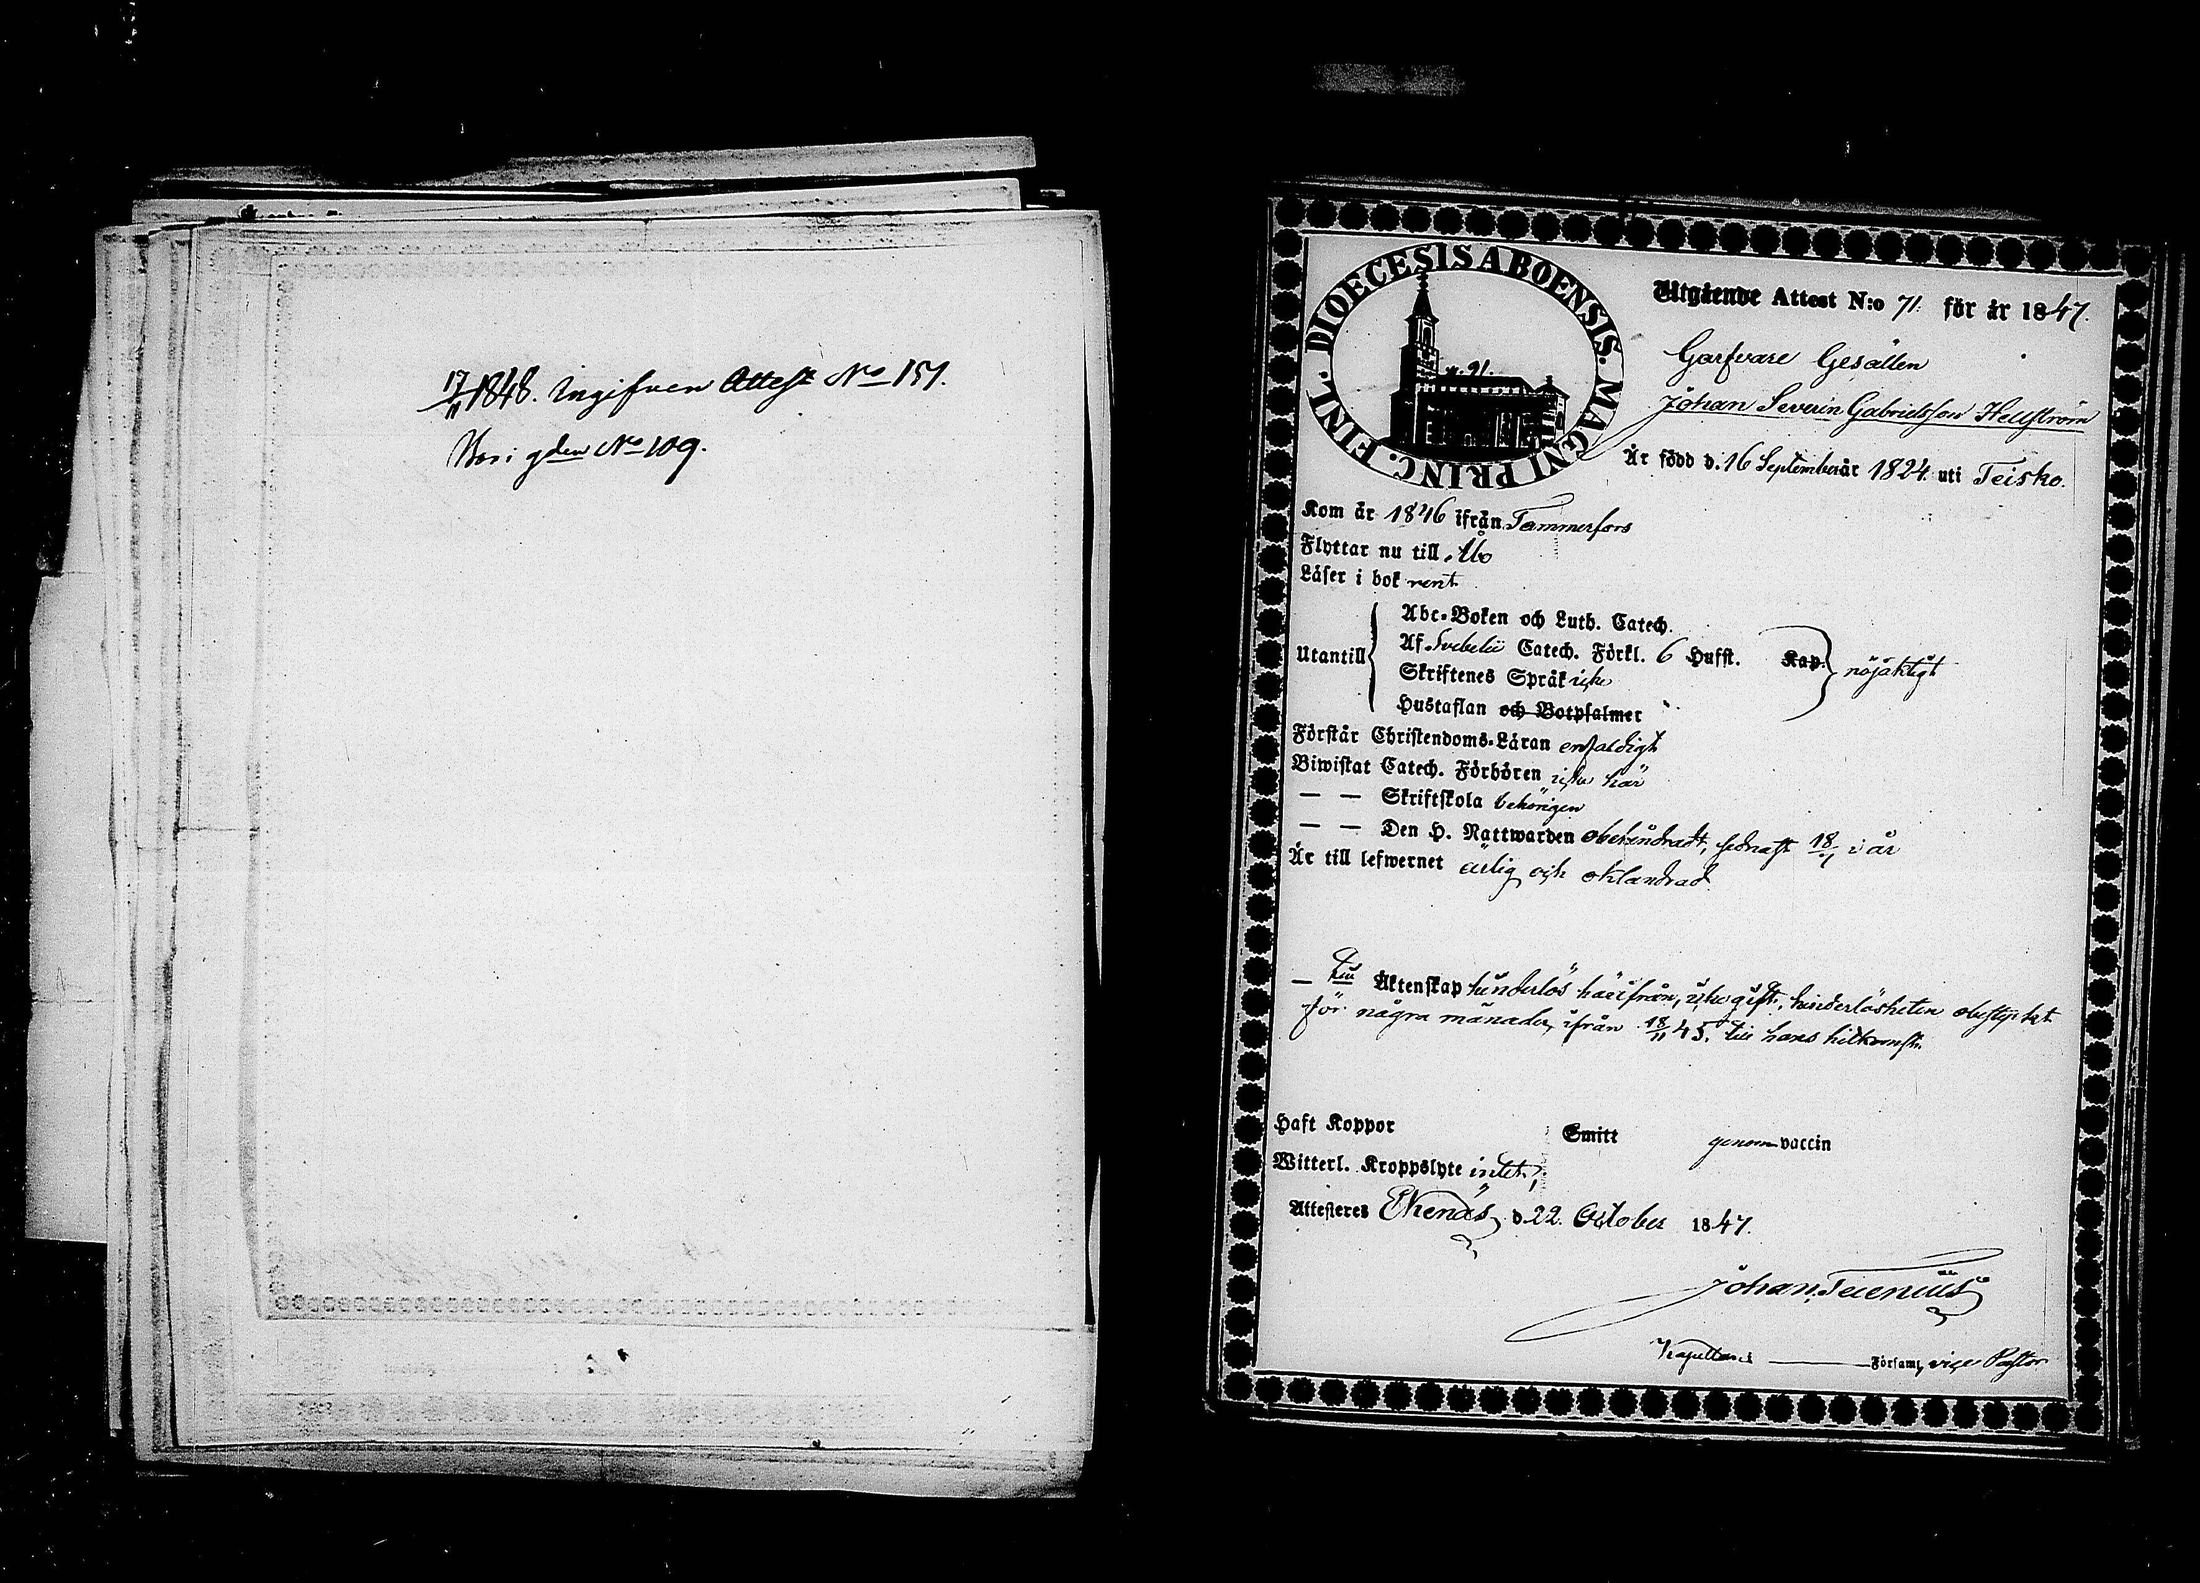 17/11 1848. Ingifven Attest No 151.
Bor i gden No 109.
DIOECESIS ABOENSIS. MAGNI PRINC. FINL.
Utgående Attest N:o 71. för år 1847.
Garfvare Gesällen
Johan Severin Gabrielsson Hellström
Är född d. 16 September år 1824. uti Teisko.
Kom år 1846 ifrån Tammerfors
Flyttar nu till Åbo
Läser i bok rent
Utantill
Abc-Boken och Luth. Catech.
Af Svebelii Catech. Förkl. 6 Hufst. Kap. nöjaktigt
Skriftenes Språk icke
Hustaflan och Botpsalmer
Förstår Christendoms-Läran enfaldigt
Biwistat Catech. Förhören icke här
— — Skriftskola behörigen
— — Den H. Nattwarden obehindradt, sednast 18/1 i år
Är till lefwernet ärlig och oklandrad
— Till Äktenskap hinderlös härifrån, icke gift, hinderlösheten obestyrkt
för några månader, ifrån 18/11 45. till hans hitkomst.
Haft Koppor Smitt genom vaccin
Witterl. Kroppslyte intet;
Attesteres Ekenäs d. 22. October 1847.
Johan
Kapellan i ——— Församl, vice Pastor